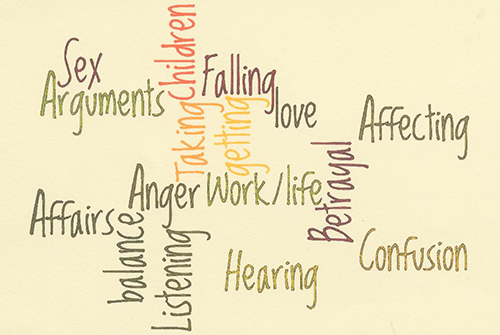 Sex
Children
Falling
Arguments
Taking
getting
love
Affecting
Anger
Work/life
Betrayal
Affairs
balance
Listening
Hearing
Confusion